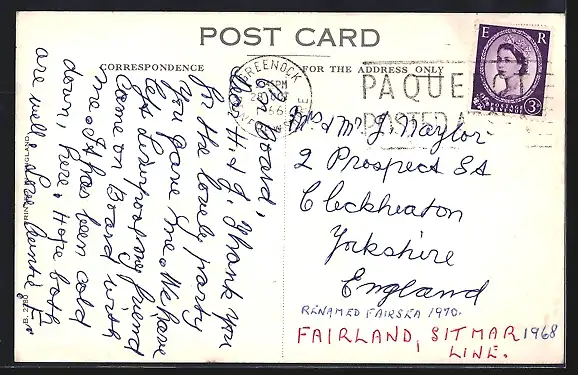 POST CARD
CORRESPONDENCE
FOR THE ADDRESS ONLY
E R
3D
GREENOCK
PAQUE
POSTED A
On Board,
Dear H & J, Thank you
for the lovely party
you gave me. We have
left Liverpool my friend
came on Board with
me. It has been cold
down here. Hope both
are well. Love Auntie
Mrs & Mr J Naylor
2 Prospect St
Cleckheaton
Yorkshire
England
RENAMED FAIRSEA 1970.
FAIRLAND, SITMAR 1968
LINE.